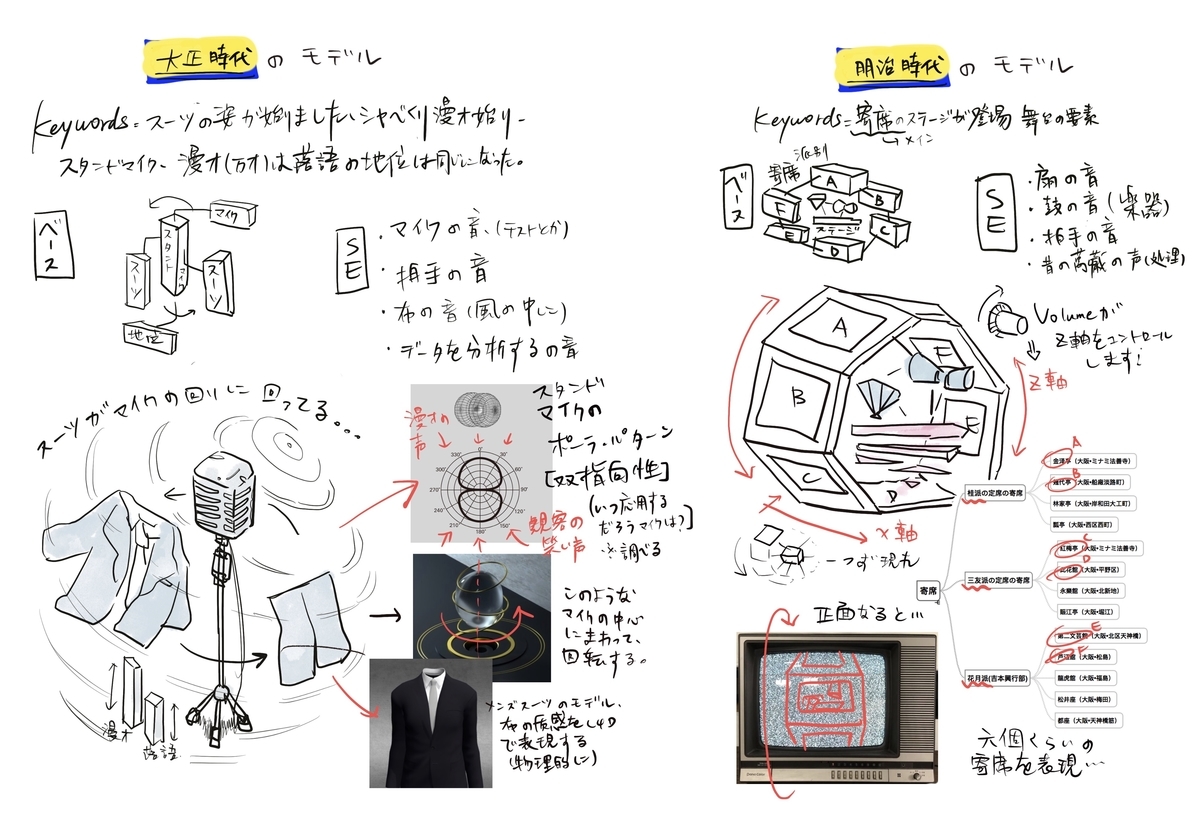 大正時代のモデル
Keywords=スーツの姿が始りました、シャべくり漫才始り、
スタンドマイク、漫才(万才)は落語の地位は同じになった。
ベース
マイク
スタンドマイク
スーツ
スーツ
地位
SE
・マイクの音、(テストとか)
・拍手の音
・布の音(風の中に)
・データを分析するの音
スーツがマイクの回りに回ってる...
漫才
落語
漫才の声
0°
30°
60°
90°
120°
150°
180
210
240
270
300
330°
観客の笑い声
スタンド
マイクの
ポーラ・パターン
[双指向性]
(いつ応用する
だろうマイクは?]
※調べる
このような
マイクの中心
にまわって、
回転する。
メンズスーツのモデル、
布の質感をC4D
で表現する
(物理的に)
明治時代のモデル
Keywords=寄席のステージが登場 舞台の要素
メイン
ベース
寄席
派別
A
B
C
D
E
F
ステージ
SE
・扇の音
・鼓の音(楽器)
・拍手の音
・昔の萬歳の声(処理)
A
B
C
D
E
F
Volumeが
Z軸をコントロール
します!
Z軸
X軸
一つず現れ
正面なると...
寄席
桂派の定席の寄席
A
金澤亭（大阪・ミナミ法善寺）
B
(大阪・船場淡路町)
林家亭（大阪・岸和田大工町）
瓢亭（大阪・西区西町）
三友派の定席の寄席
C
紅梅亭（大阪・ミナミ法善寺）
D
此花館（大阪・平野区）
永樂館（大阪・北新地）
賑江亭（大阪・堀江）
花月派(吉本興行部)
E
第二文芸館（大阪・北区天神橋）
F
芦辺館（大阪・松島）
龍虎館（大阪・福島）
松井座（大阪・梅田）
都座（大阪・天神橋筋）
六個くらいの
寄席を表現...